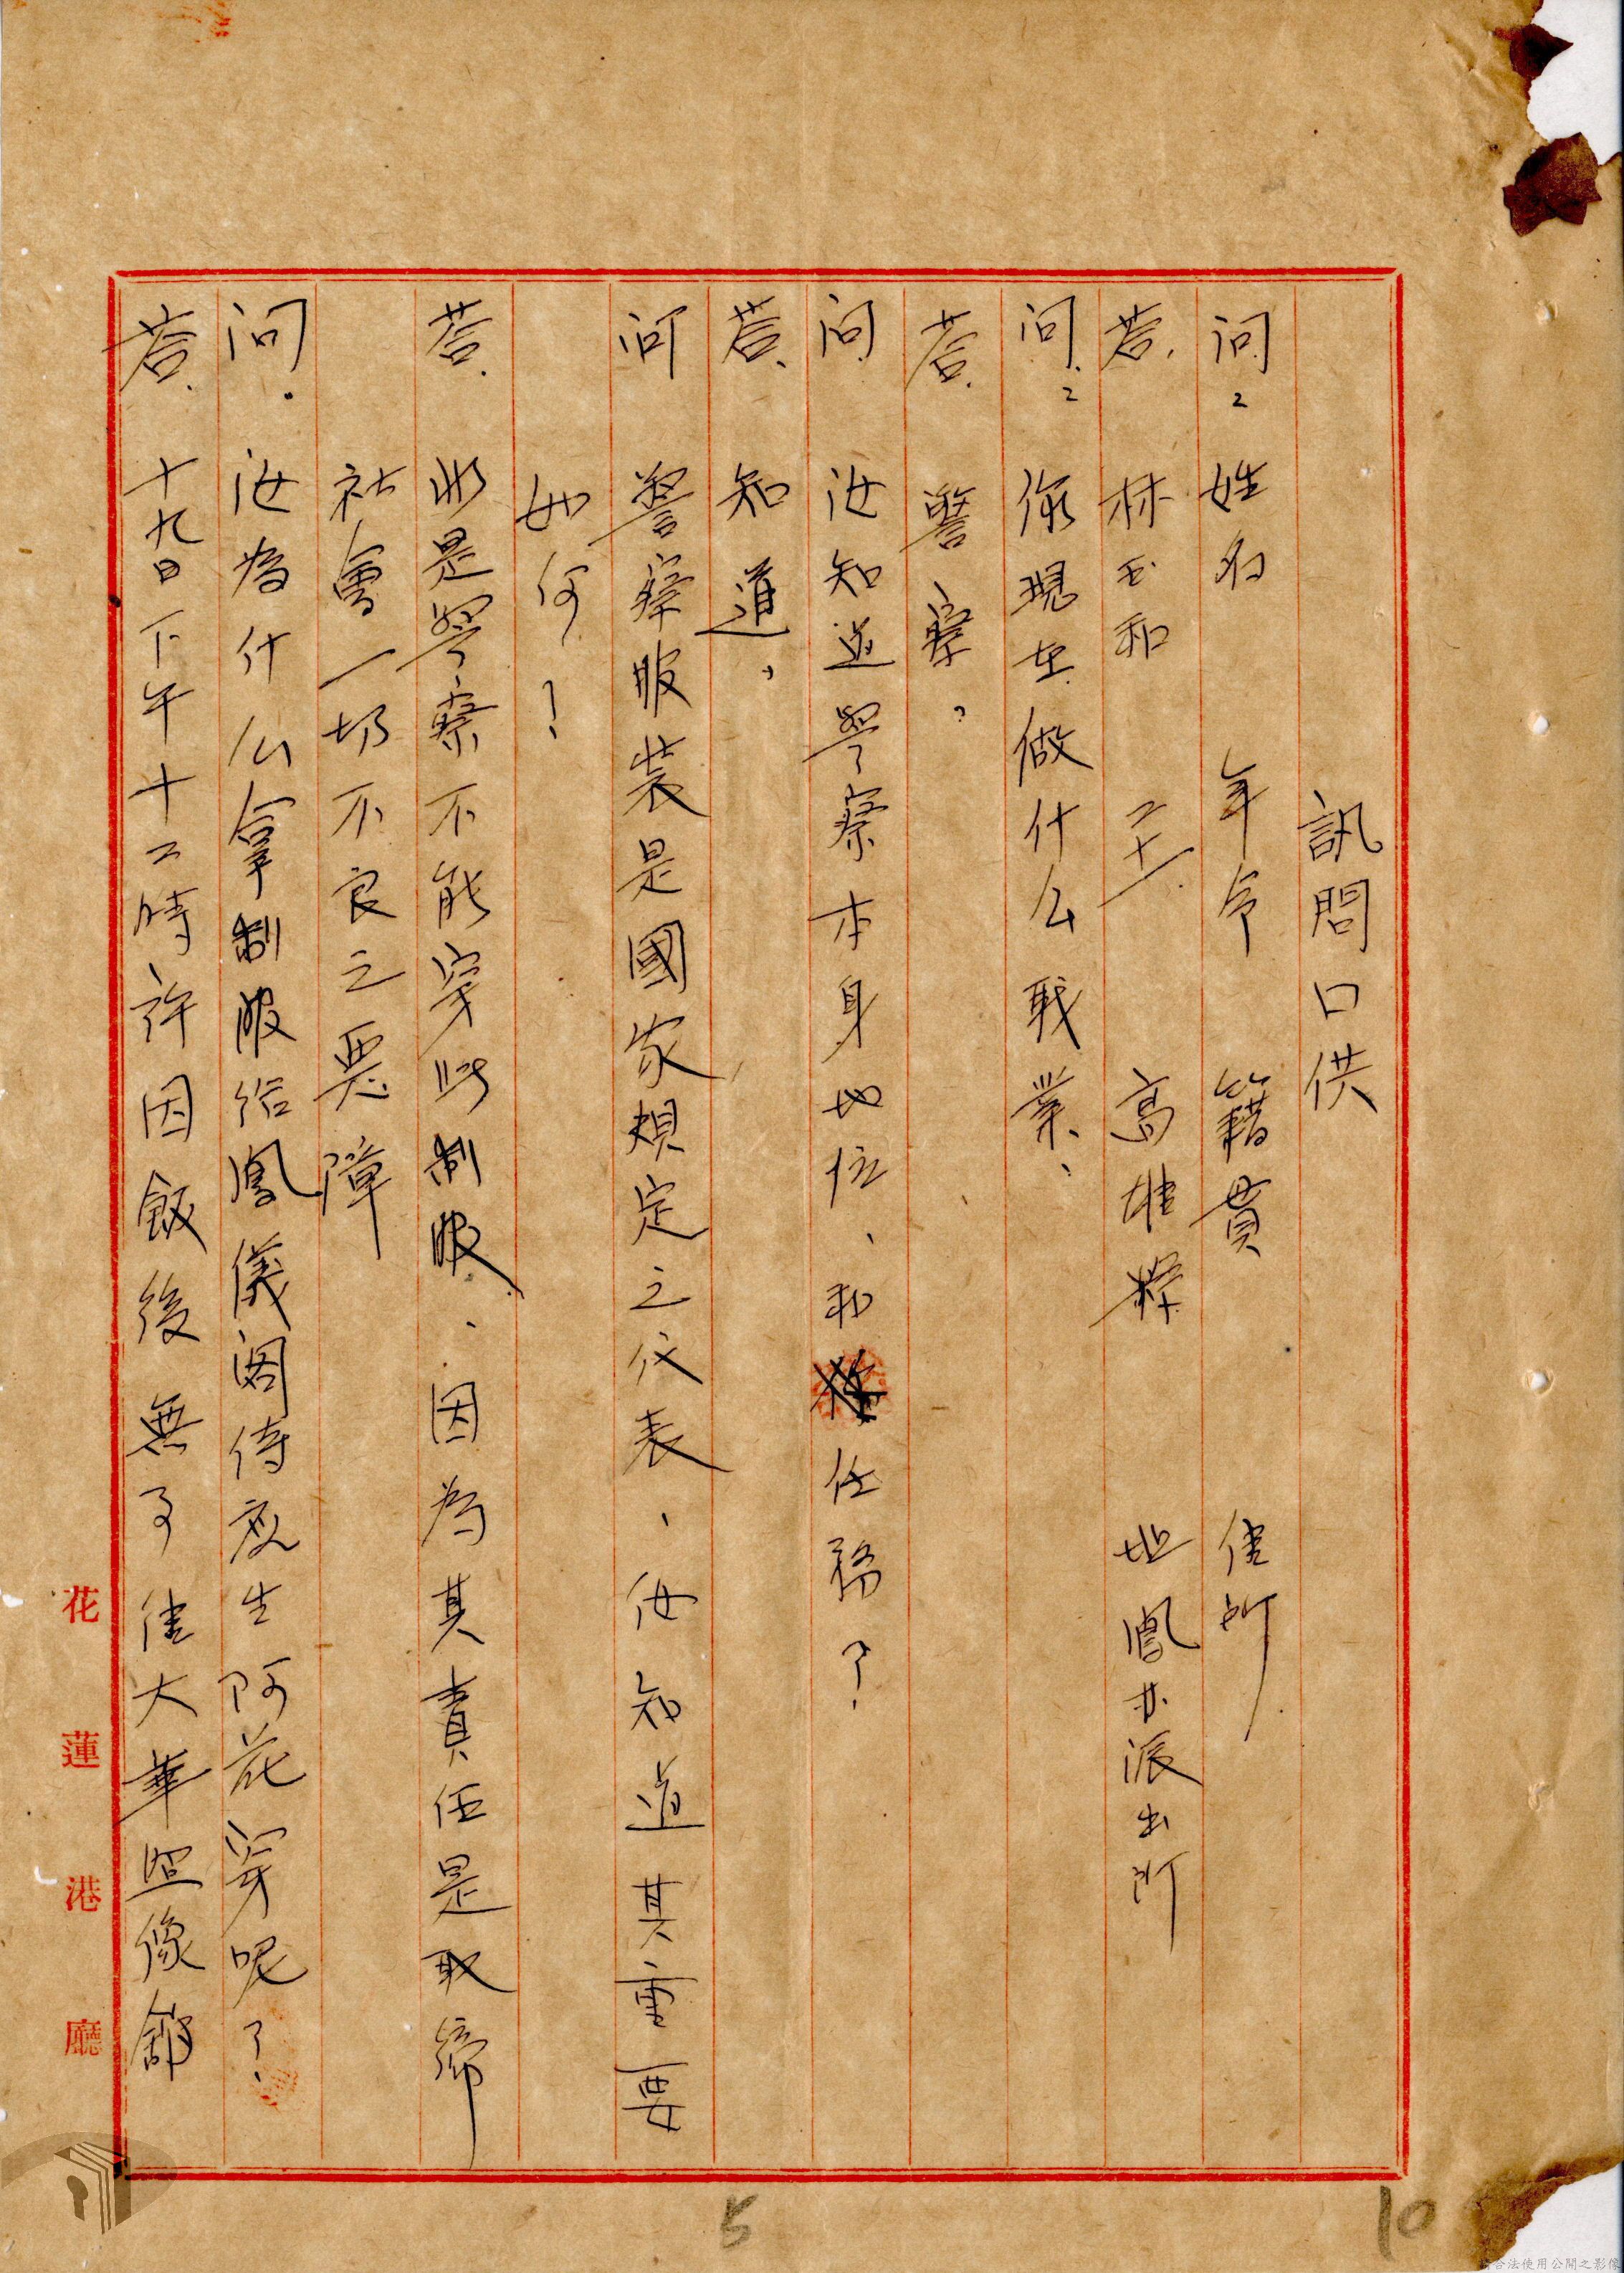 訊問口供
问、姓名 年令 籍貫 住所
荅、林玉和 二十一 高雄縣 地鳳林派出所
问、你現在做什么职業、
荅、警察。
问 汝知道警察本身地位、和任務？
荅、知道、
问 警察服装是國家規定之代表、汝知道其重要
如何？
荅、此是警察不能穿此制服、因為其責任是取締
社會一切不良之惡障
问、汝為什么拿制服给鳳儀阁侍应生阿花穿呢？
荅、十九日下午十二時許因飯後無事往大華照像舘
花蓮港廳
5
10
合法使用公開之影像